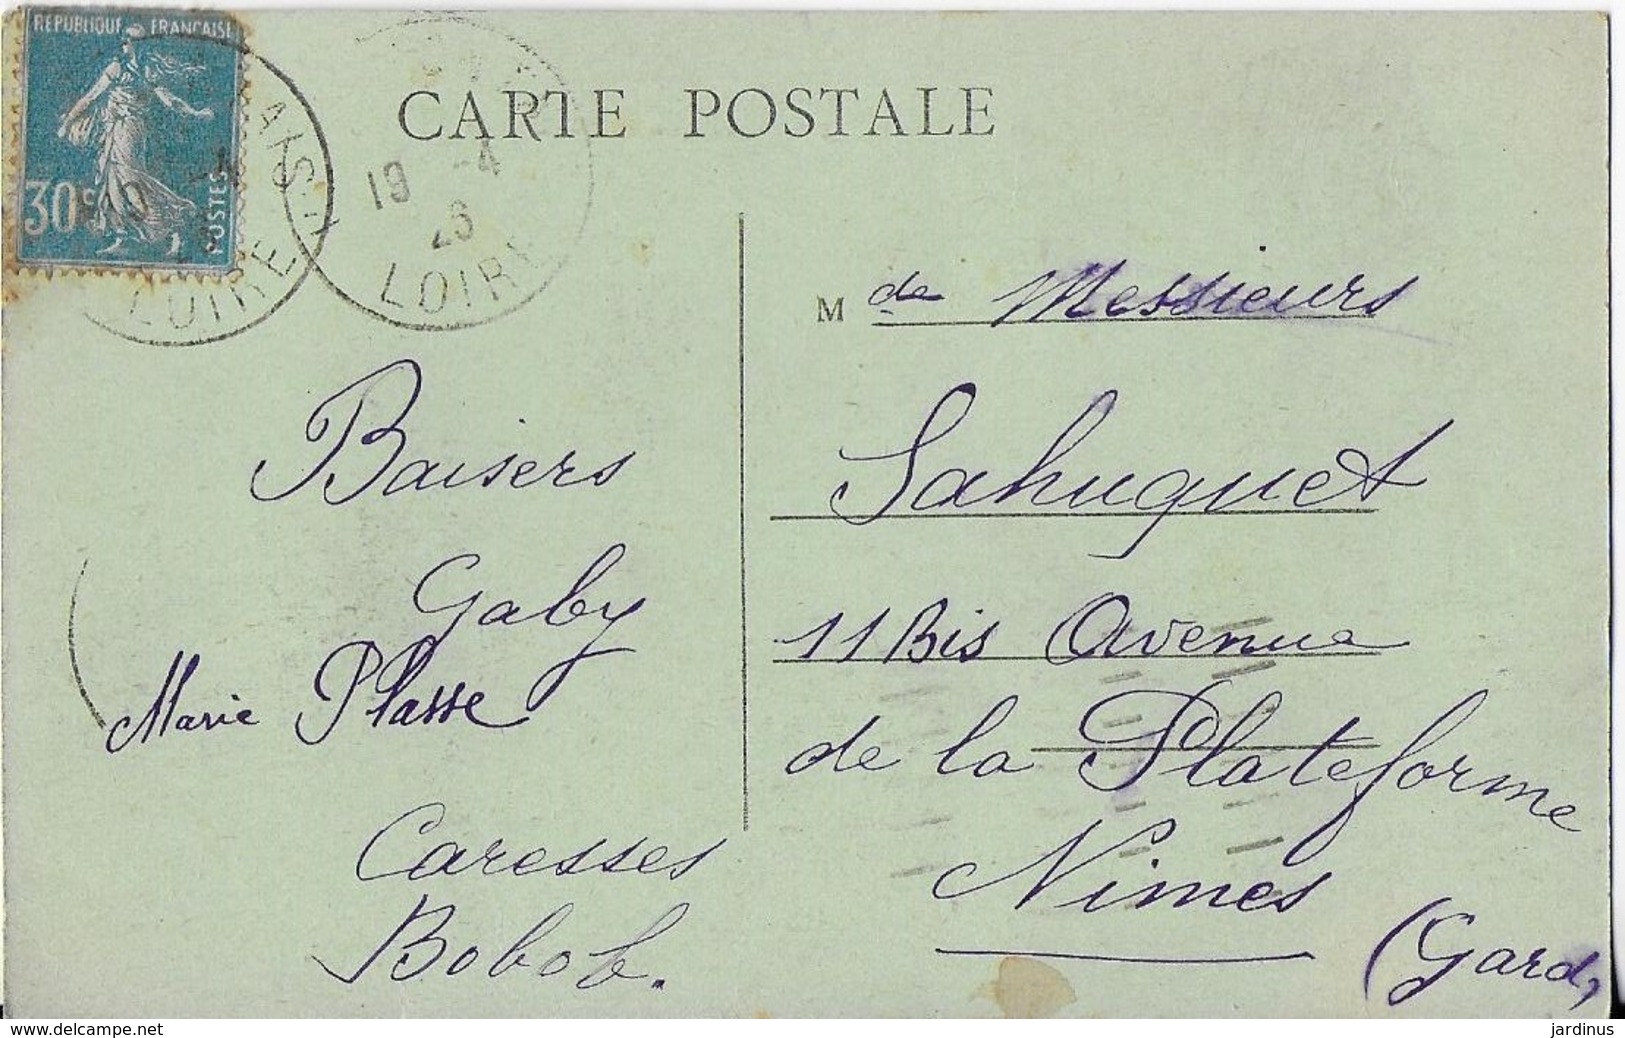 REPUBLIQUE FRANCAISE
30c
POSTES
CARTE POSTALE
19 -4
26
LOIRE
LOIRE
M de Messieurs
Sahuquet
11 Bis Avenue
de la Plateforme
Nimes
(Gard)
Baisers
Gaby
Marie Plasse
Caresses
Bobob.
www.delcampe.net
jardinus